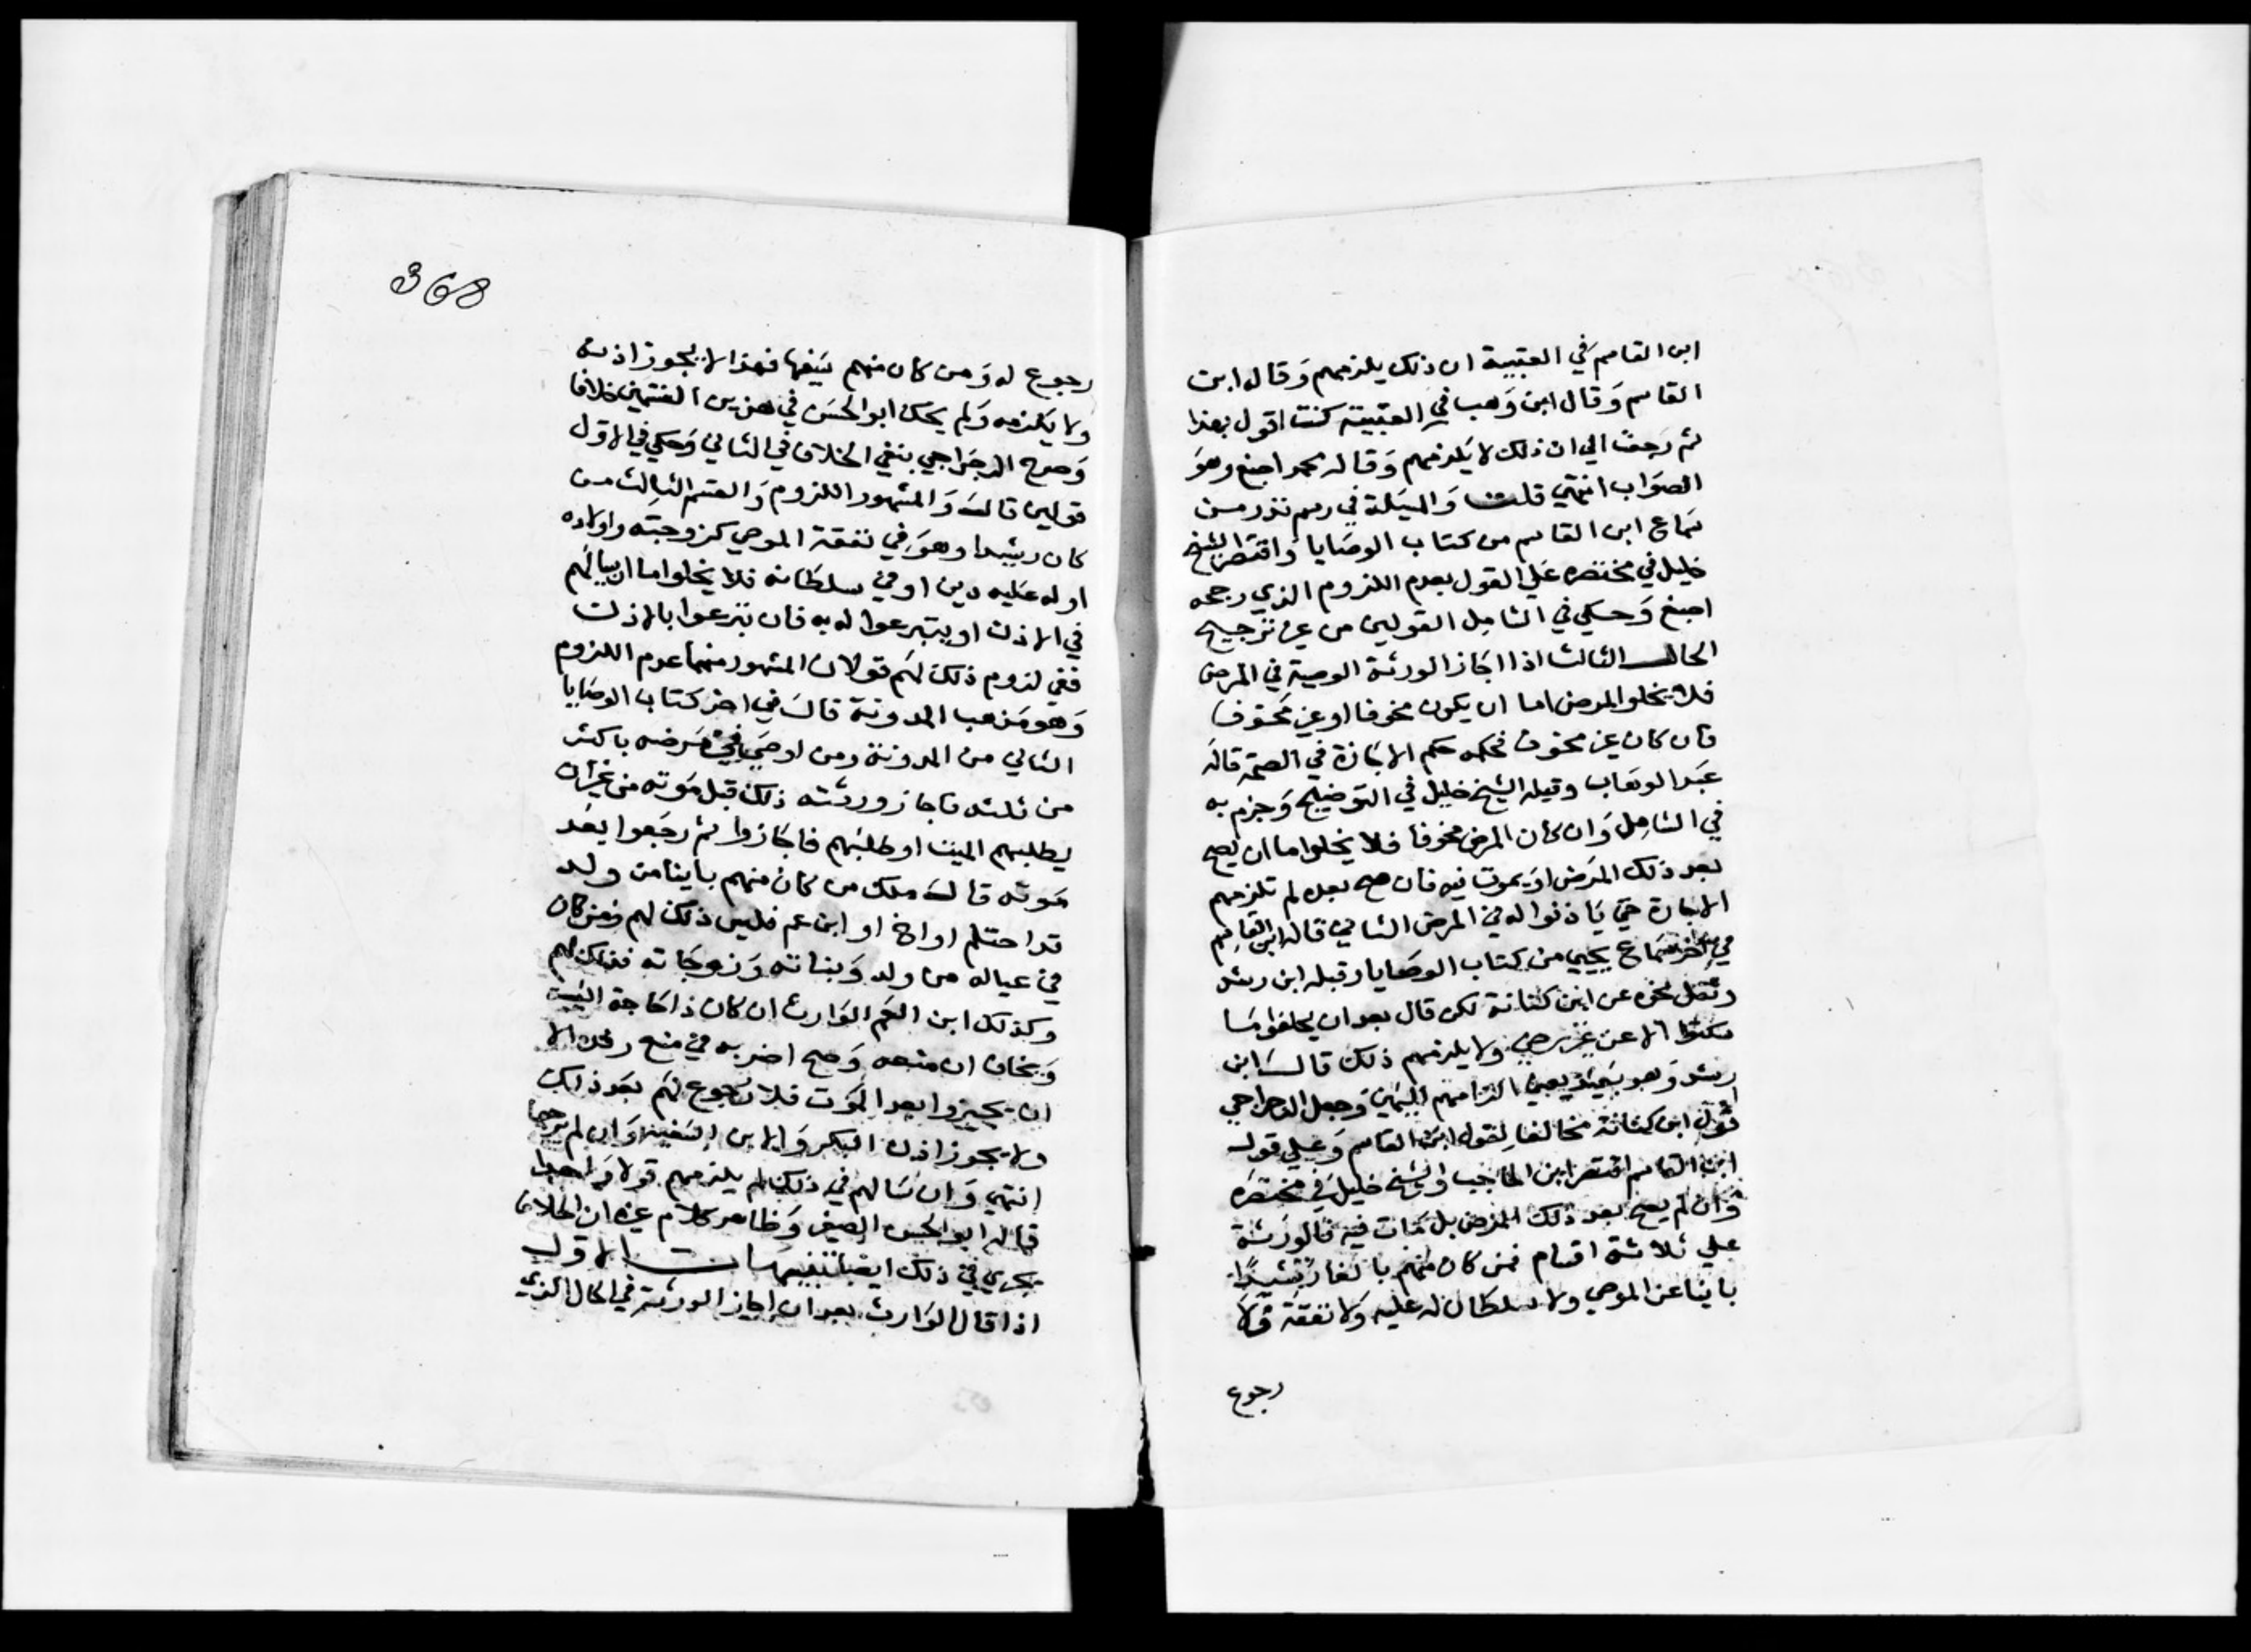 ابن القاسم في العتبية ان ذلك يلزمهم وقاله ابن
القاسم وقال ابن وهب في العتبية كنت اقول بهذا
ثم رجعت الي ان ذلك لا يلزمهم وقاله محمد اصبغ وهو
الصواب انتهي قلت والمسئلة في رسم نذر من
سماع ابن القاسم من كتاب الوصايا واقتصر الشيخ
خليل في مختصره علي القول بعدم اللزوم الذي رجحه
اصبغ وحكي في الشامل القولين من غير ترجيح
الحال الثالث اذا اجاز الورثة الوصية في المرض
فلا يخلو المرض اما ان يكون مخوفا او غير مخوف
فان كان غير مخوف فحكمه حكم الاجازة في الصحة قاله
عبد الوهاب وقبله الشيخ خليل في التوضيح وجزم به
في الشامل وان كان المرض مخوفا فلا يخلوا ما ان يصح
بعد ذلك المرض او يموت فيه فان صح بعده لم تلزمهم
الاجازة حتي ياذنوا له في المرض الثاني قاله ابن القاسم
في اخر سماع يحيي من كتاب الوصايا وقبله ابن رشد
ونقل نحوه عن ابن كنانة لكن قال بعد ان يحلفوا ما
سكتوا الا عن غير رضي ولا يلزمهم ذلك قال ابن
رشد وهو بعيد يعني الزامهم اليمين وجعل الرجراجي
قول ابن كنانة مخالفا لقول ابن القاسم وعلي قول
ابن القاسم اقتصر ابن الحاجب والشيخ خليل في مختصره
وان لم يصح بعد ذلك المرض بل مات فيه فالورثة
علي ثلاثة اقسام فمن كان منهم بالغا رشيدا
باينا عن الموصي ولا سلطان له عليه ولا نفقة فلا
رجوع
368
رجوع له ومن كان منهم سفيها فهذا لا يجوز اذنه
ولا يلزمه ولم يحك ابو الحسن في هذين القسمين خلافا
وصرح الرجراجي بنفي الخلاف في الثاني وحكي في الاول
قولين قال والمشهور اللزوم والقسم الثالث من
كان رشيدا وهو في نفقة الموصي كزوجته واولاده
او له عليه دين او في سلطانه فلا يخلوا ما ان يسالهم
في الاذن او يتبرعوا له به فان تبرعوا بالاذن
ففي لزوم ذلك لهم قولان المشهور منهما عدم اللزوم
وهو مذهب المدونة قال في اخر كتاب الوصايا
الثاني من المدونة ومن اوصي في مرضه باكثر
من ثلثه فاجاز ورثته ذلك قبل موته من غير ان
يطلبهم الميت او طلبهم فاجازوا ثم رجعوا بعد
موته قال ملك من كان منهم باينا من ولد
قد احتلم او اخ او ابن عم فليس ذلك لهم ومن كان
في عياله من ولد وبناته وزوجاته فذلك لهم
وكذلك ابن العم الوارث ان كان ذا حاجة اليه
ويخاف ان منعه وصح اضر به في منع رفده الا
ان يجيزوا بعد الموت فلا رجوع لهم بعد ذلك
ولا يجوز اذن البكر والابن السفيه وان لم يرجعا
انتهي وان سالهم في ذلك لم يلزمهم قولا واحدا
قاله ابو الحسن الصغير وظاهر كلام غيره ان الخلاف
يجري في ذلك ايضا تنبيهات الاول
اذا قال الوارث بعد ان اجاز الورثة في الحال الذي